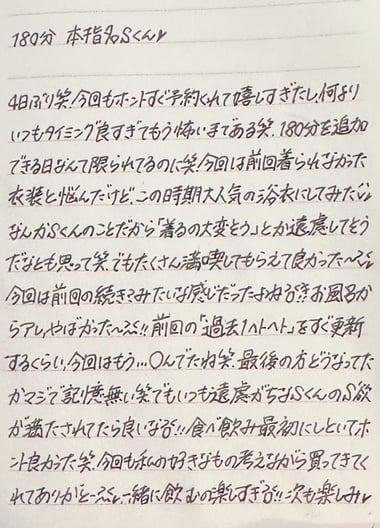 180分 本指名Sくん♥
4日ぶり笑!今回もホントすぐ予約くれて嬉しすぎたし、何より
いつもタイミング良すぎてもう怖いまである笑。180分を追加
できる日なんて限られてるのに笑!今回は前回着られなかった
衣装と悩んだけど、この時期大人気の浴衣にしてみた
なんかSくんのことだから「着るの大変そう」とか遠慮してそう
だなとも思って笑。でもたくさん満喫してもらえて良かった〜!!
今回は前回の続きみたいな感じだったよねる!!お風呂か
らアレ、やばかった〜!!前回の「過去1ヘトヘト」をすぐ更新
するくらい、今回はもう...〇んでたね笑。最後の方どうなってた
かマジで記憶無い笑でもいつも遠慮がちなSくんのS欲
が満たされてたら良いな!!食べ飲み最初にしといてホ
ント良かった笑。今回も私の好きなもの考えながら買ってきてく
れてありがと〜!一緒に飲むの楽しすぎる!!次も楽しみ♥